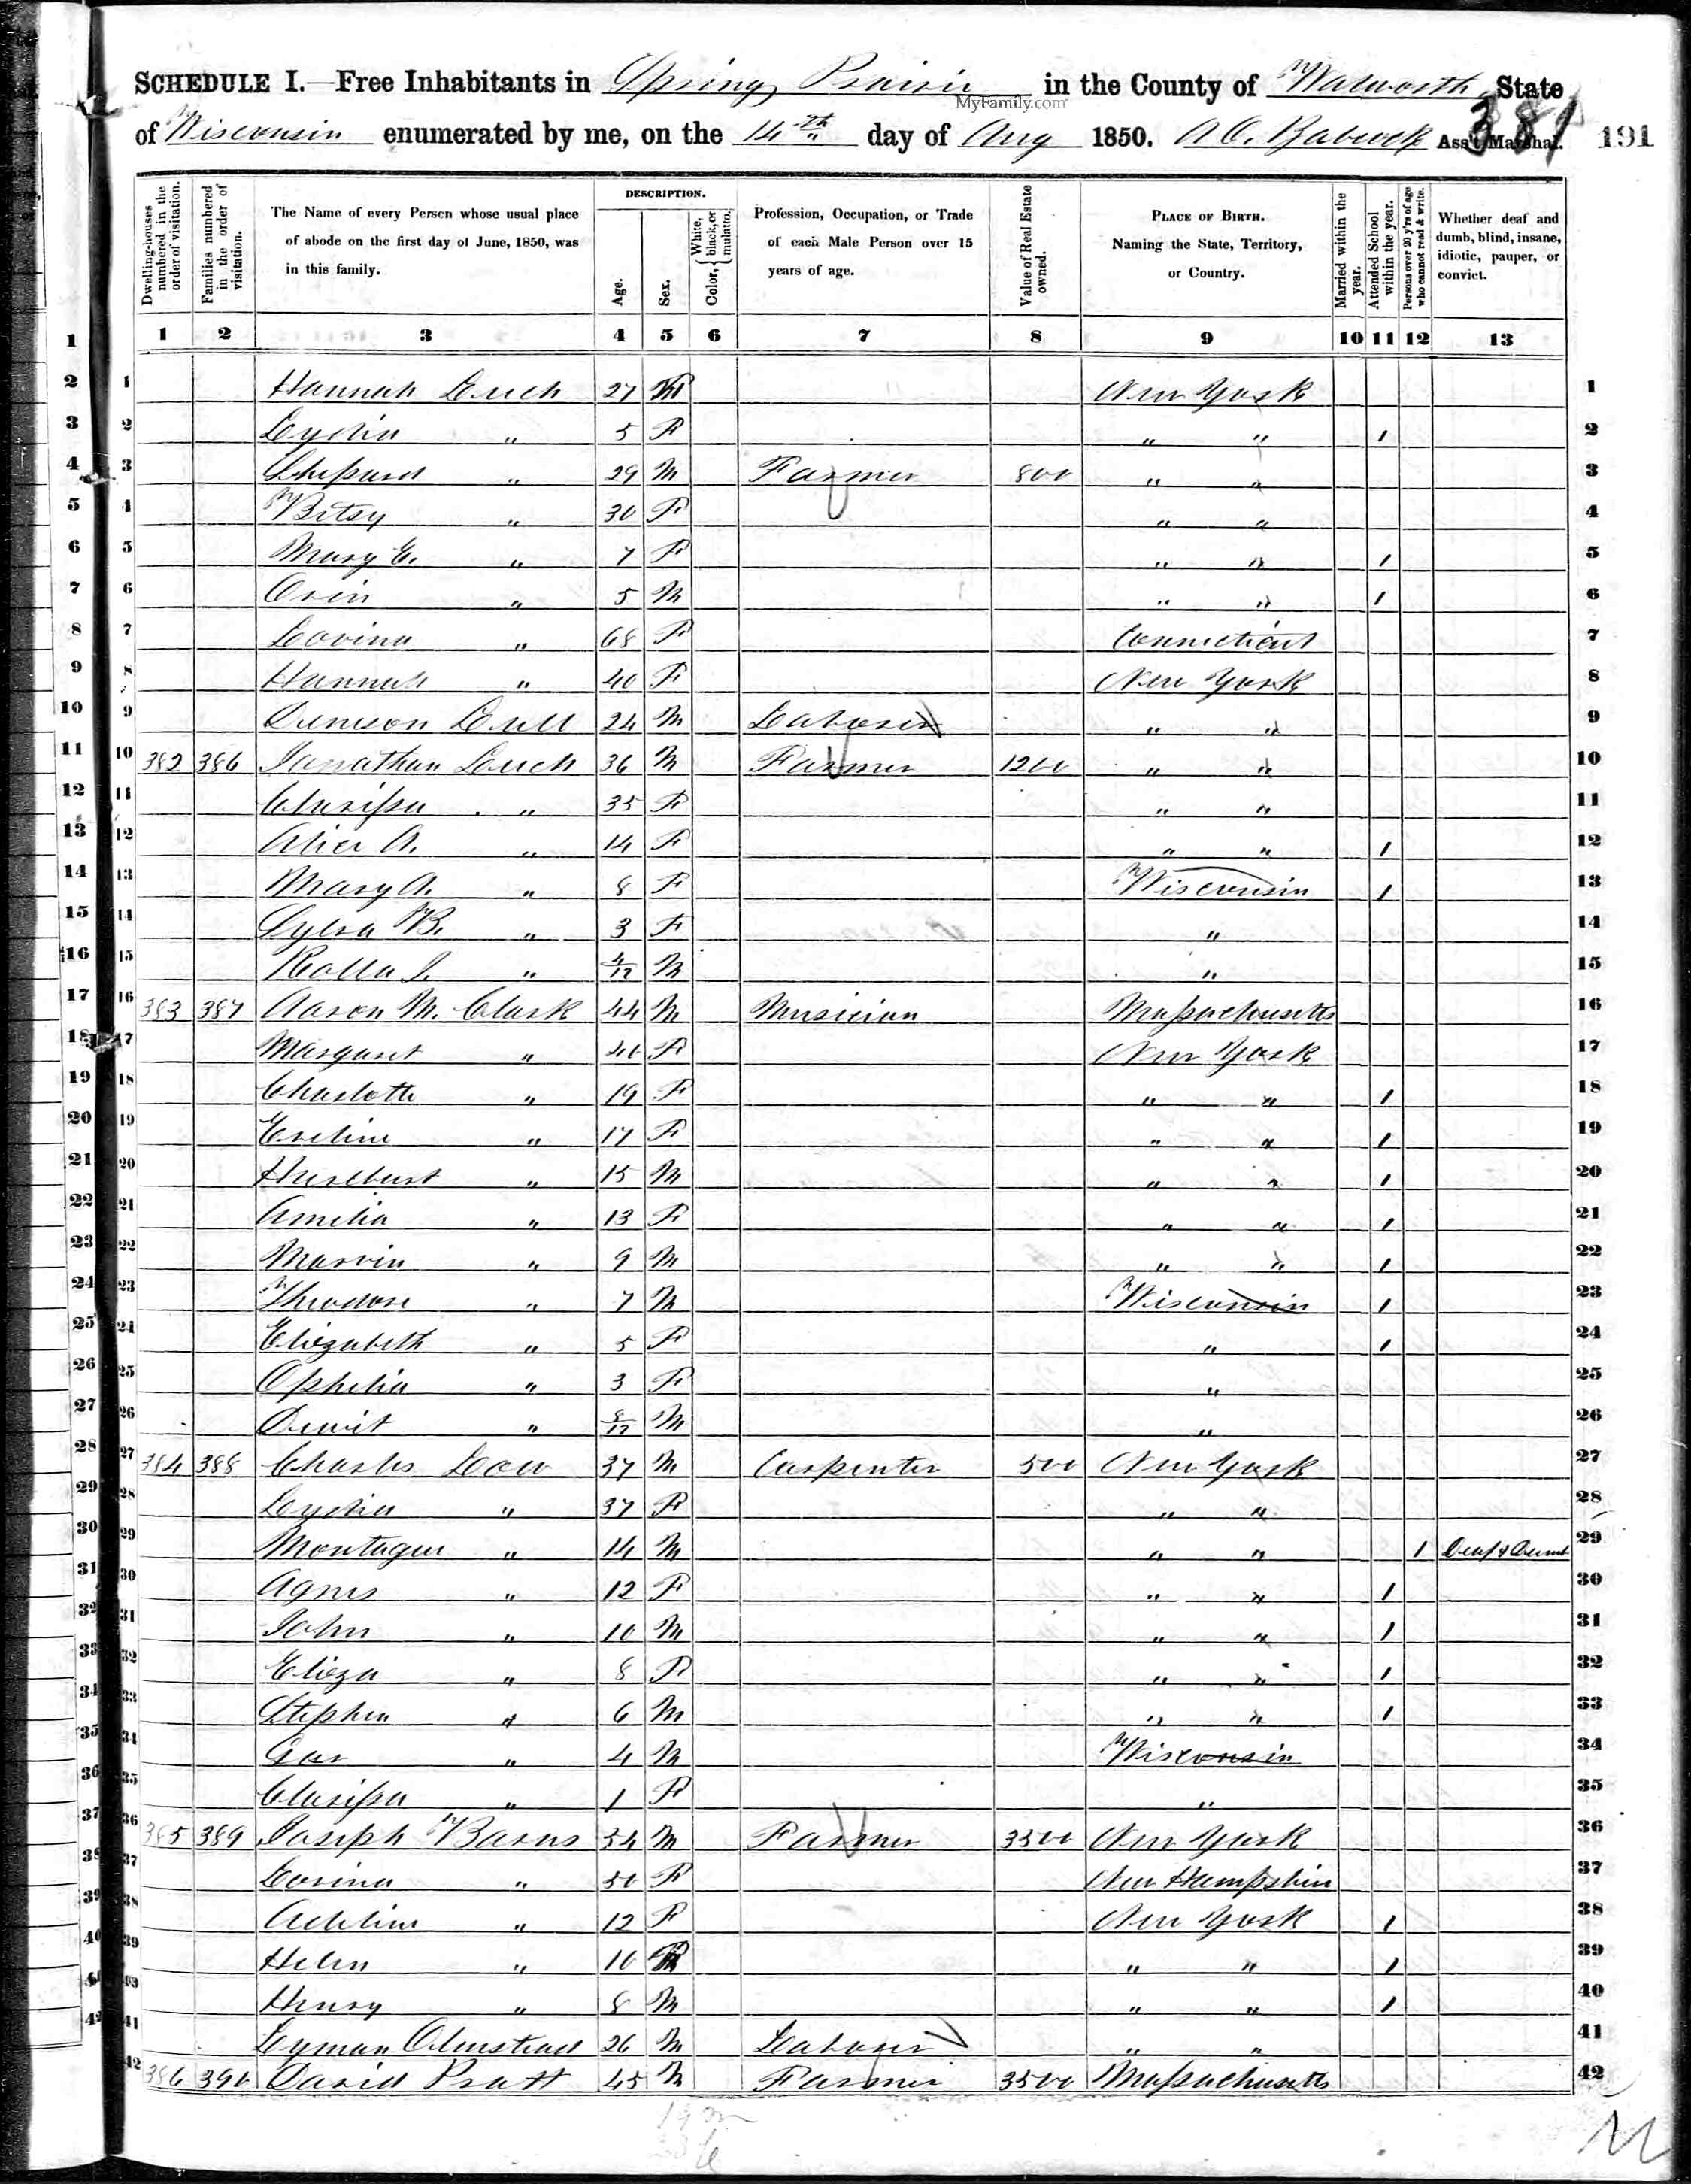 SCHEDULE I.—Free Inhabitants in Spring Prairie in the County of Walworth State
MyFamily.com
of Wisconsin enumerated by me, on the 14th day of Aug 1850. A.C. Babcock Ass't Marshal. 381 191
Dwelling-houses numbered in the order of visitation.
Families numbered in the order of visitation.
The Name of every Person whose usual place of abode on the first day of June, 1850, was in this family.
DESCRIPTION.
Age.
Sex.
Color, { White, black, or mulatto.
Profession, Occupation, or Trade of each Male Person over 15 years of age.
Value of Real Estate owned.
PLACE OF BIRTH. Naming the State, Territory, or Country.
Married within the year.
Attended School within the year.
Persons over 20 y'rs of age who cannot read & write.
Whether deaf and dumb, blind, insane, idiotic, pauper, or convict.
1 2 3 4 5 6 7 8 9 10 11 12 13
1 Hannah 27 New York 1
2 Lydia " 5 F " " 1 2
3 Shepard " 29 M Farmer 800 " " 3
4 Betsy " 30 F " " 4
5 Mary E. " 7 F " " 1 5
6 Orin " 5 M " " 1 6
7 Lovina " 68 F Connecticut 7
8 Hannah " 40 F New York 8
9 24 M Laborer " " 9
10 382 386 Jonathan 36 M Farmer 1200 " " 10
11 Clarissa " 35 F " " 11
12 Alice A. " 14 F " " 1 12
13 Mary A. " 8 F Wisconsin 1 13
14 B. " 3 F " 14
15 Rolla J. " 4/12 M " 15
16 383 387 Aaron M. Clark 44 M Musician Massachusetts 16
17 Margaret " 40 F New York 17
18 Charlotte " 19 F " " 1 18
19 Eveline " 17 F " " 1 19
20 Hurlburt " 15 M " " 1 20
21 Amelia " 13 F " " 1 21
22 Marvin " 9 M " " 1 22
23 Theodore " 7 M Wisconsin 1 23
24 Elizabeth " 5 F " 1 24
25 Ophelia " 3 F " 25
26 Dewit " 8/12 M " 26
27 384 388 Charles Dow 37 M Carpenter 500 New York 27
28 Lydia " 37 F " " 28
29 Montague " 14 M " " 1 Deaf & Dumb 29
30 Agnes " 12 F " " 1 30
31 John " 10 M " " 1 31
32 Eliza " 8 F " " 1 32
33 Stephen " 6 M " " 1 33
34 " 4 M Wisconsin 34
35 Clarissa " 1 F " 35
36 385 389 Joseph Barns 54 M Farmer 3500 New York 36
37 Lovina " 50 F New Hampshire 37
38 Adeline " 12 F New York 1 38
39 Helen " 10 F " " 1 39
40 Henry " 8 M " " 1 40
41 Lyman Olmstead 26 M Laborer " " 41
42 386 390 David Pratt 45 M Farmer 3500 Massachusetts 42